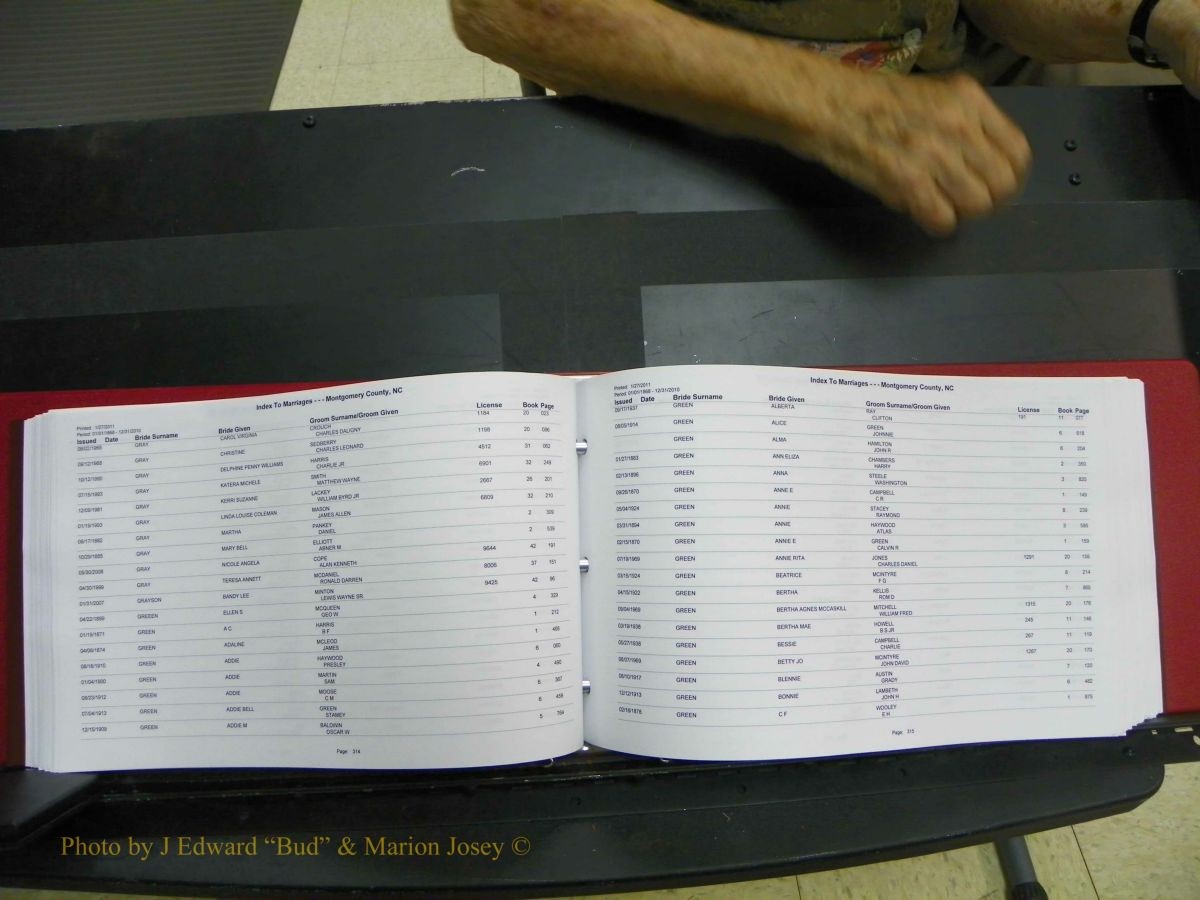 Index To Marriages - - - Montgomery County, NC
Printed: 1/27/2011
Period: 01/01/1868 - 12/31/2010
Issued Date Bride Surname Bride Given Groom Surname/Groom Given License Book Page
GRAY CAROL VIRGINIA CROUCH 1184 20 023
CHARLES DALIGNY
09/12/1968 GRAY CHRISTINE SEDBERRY 1198 20 096
CHARLES LEONARD
10/12/1990 GRAY DELPHINE PENNY WILLIAMS HARRIS 4512 31 062
CHARLIE JR
07/15/1993 GRAY KATERA MICHELE SMITH 6901 32 249
MATTHEW WAYNE
12/09/1981 GRAY KERRI SUZANNE LACKEY 2667 26 201
WILLIAM BYRD JR
GRAY LINDA LOUISE COLEMAN MASON 6809 32 210
JAMES ALLEN
GRAY MARTHA PANKEY 2 309
DANIEL
GRAY MARY BELL ELLIOTT 2 539
ABNER M
05/30/2008 GRAY NICOLE ANGELA COPE 9644 42 191
ALAN KENNETH
04/30/1999 GRAY TERESA ANNETT MCDANIEL 8006 37 151
RONALD DARREN
01/31/2007 GRAYSON BANDY LEE MINTON 9425 42 96
LEWIS WAYNE SR
04/22/1899 GREEEN ELLEN S MCQUEEN 4 323
GEO W
01/19/1871 GREEN A C HARRIS 1 212
B F
04/06/1874 GREEN ADALINE MCLEOD 1 466
JAMES
08/18/1910 GREEN ADDIE HAYWOOD 6 060
PRESLEY
01/04/1900 GREEN ADDIE MARTIN 4 490
SAM
08/23/1912 GREEN ADDIE MOOSE 6 367
C M
07/04/1913 GREEN ADDIE BELL GREEN 6 458
STAMEY
12/15/1909 GREEN ADDIE M BALDWIN 5 764
OSCAR W
Page: 314
Index To Marriages - - - Montgomery County, NC
Printed: 1/27/2011
Period: 01/01/1868 - 12/31/2010
Issued Date Bride Surname Bride Given Groom Surname/Groom Given License Book Page
09/17/1937 GREEN ALBERTA RAY 191 11 077
CLIFTON
GREEN ALICE GREEN 6 618
JOHNNIE
GREEN ALMA HAMILTON 6 204
JOHN R
01/27/1883 GREEN ANN ELIZA CHAMBERS 2 350
HARRY
02/13/1896 GREEN ANNA STEELE 3 820
WASHINGTON
09/26/1870 GREEN ANNE E CAMPBELL 1 149
C R
05/04/1924 GREEN ANNIE STACEY 8 239
RAYMOND
03/31/1894 GREEN ANNIE HAYWOOD 3 586
ATLAS
02/15/1870 GREEN ANNIE E GREEN 1 153
CALVIN R
07/19/1969 GREEN ANNIE RITA JONES 1291 20 156
CHARLES DANIEL
03/16/1924 GREEN BEATRICE MCINTYRE 8 214
F G
04/15/1922 GREEN BERTHA KELLIS 7 868
ROM D
09/04/1969 GREEN BERTHA AGNES MCCASKILL MITCHELL 1315 20 178
WILLIAM FRED
03/19/1938 GREEN BERTHA MAE HOWELL 245 11 146
B S JR
05/27/1938 GREEN BESSIE CAMPBELL 267 11 119
CHARLIE
06/07/1969 GREEN BETTY JO MCINTYRE 1267 20 173
JOHN DAVID
08/10/1917 GREEN BLENNIE AUSTIN 7 120
GRADY
12/12/1913 GREEN BONNIE LAMBETH 6 482
JOHN H
02/16/1878 GREEN C F WOOLEY 1 875
E H
Page: 315
Photo by J Edward “Bud” & Marion Josey ©